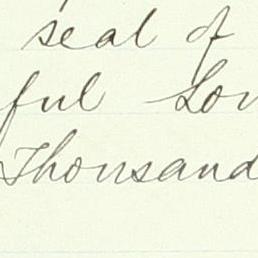 seal of
ful Lor
Thousand